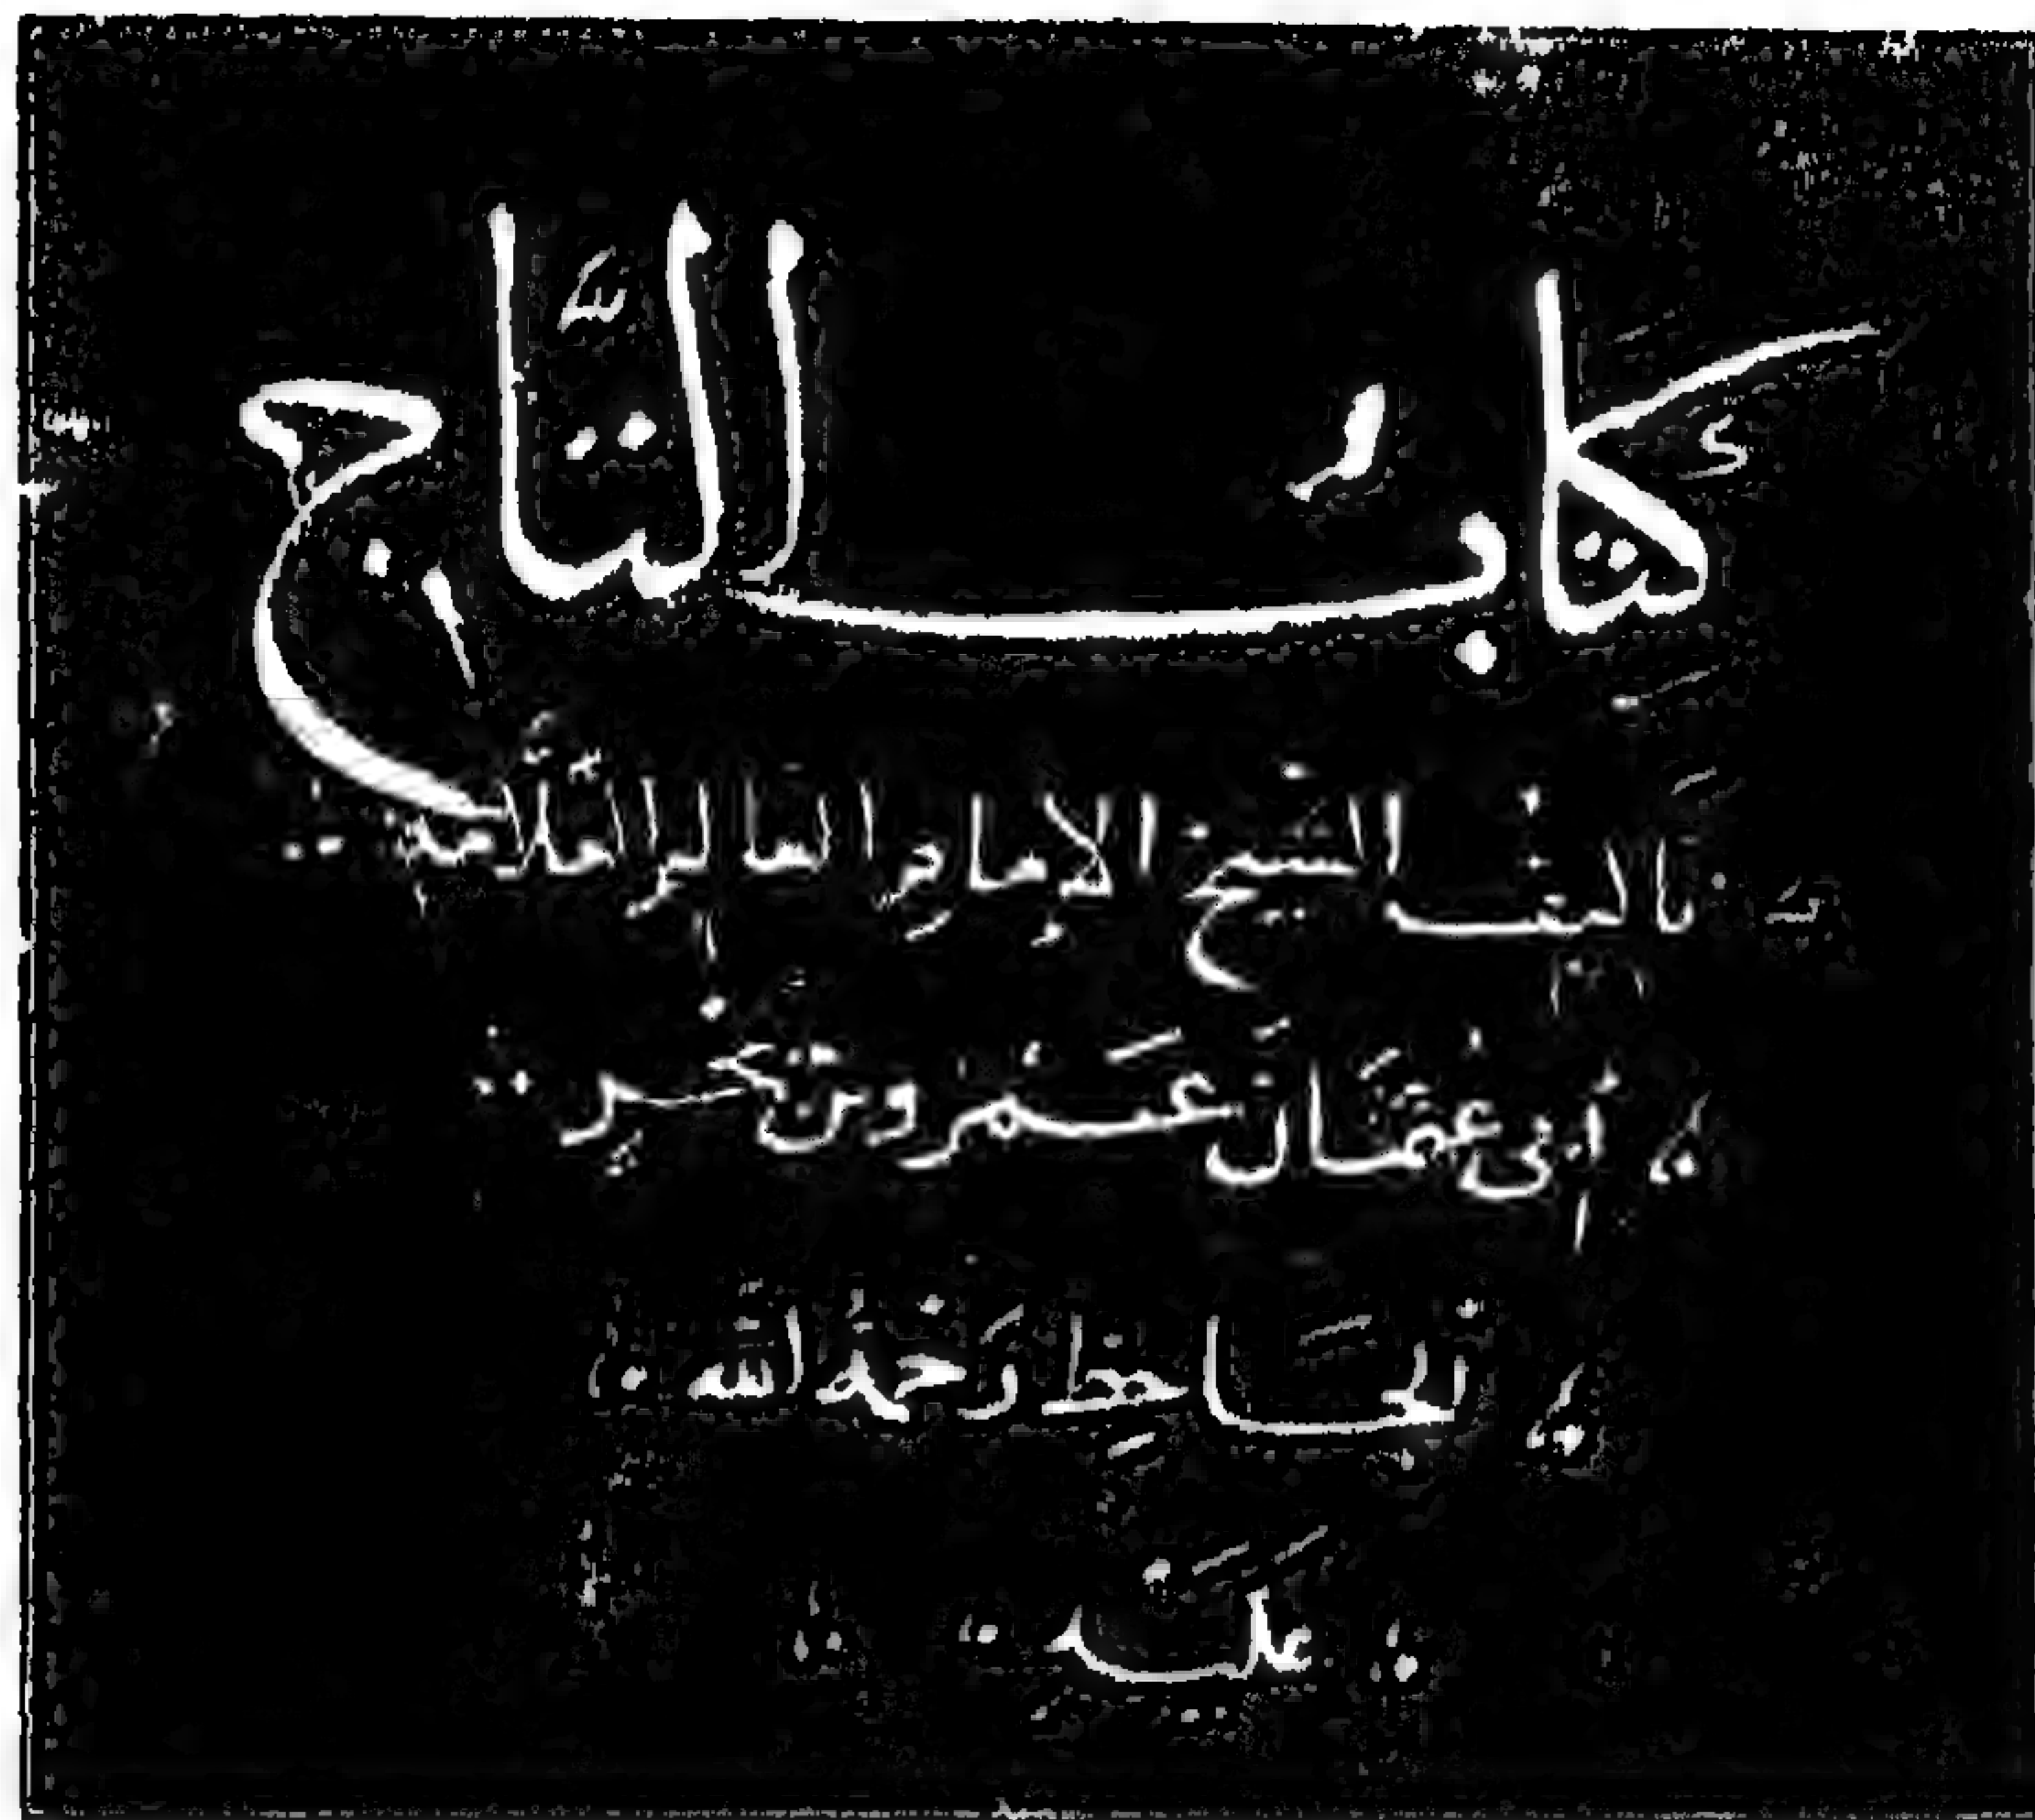 كتابُ التَّاج
تاليف الشيخ الإمام العالم العلَّامة
أبي عثمَان عَمْرو بن بَحْر
الجَاحِظِ رَحْمَهُ الله
عَلَيْه